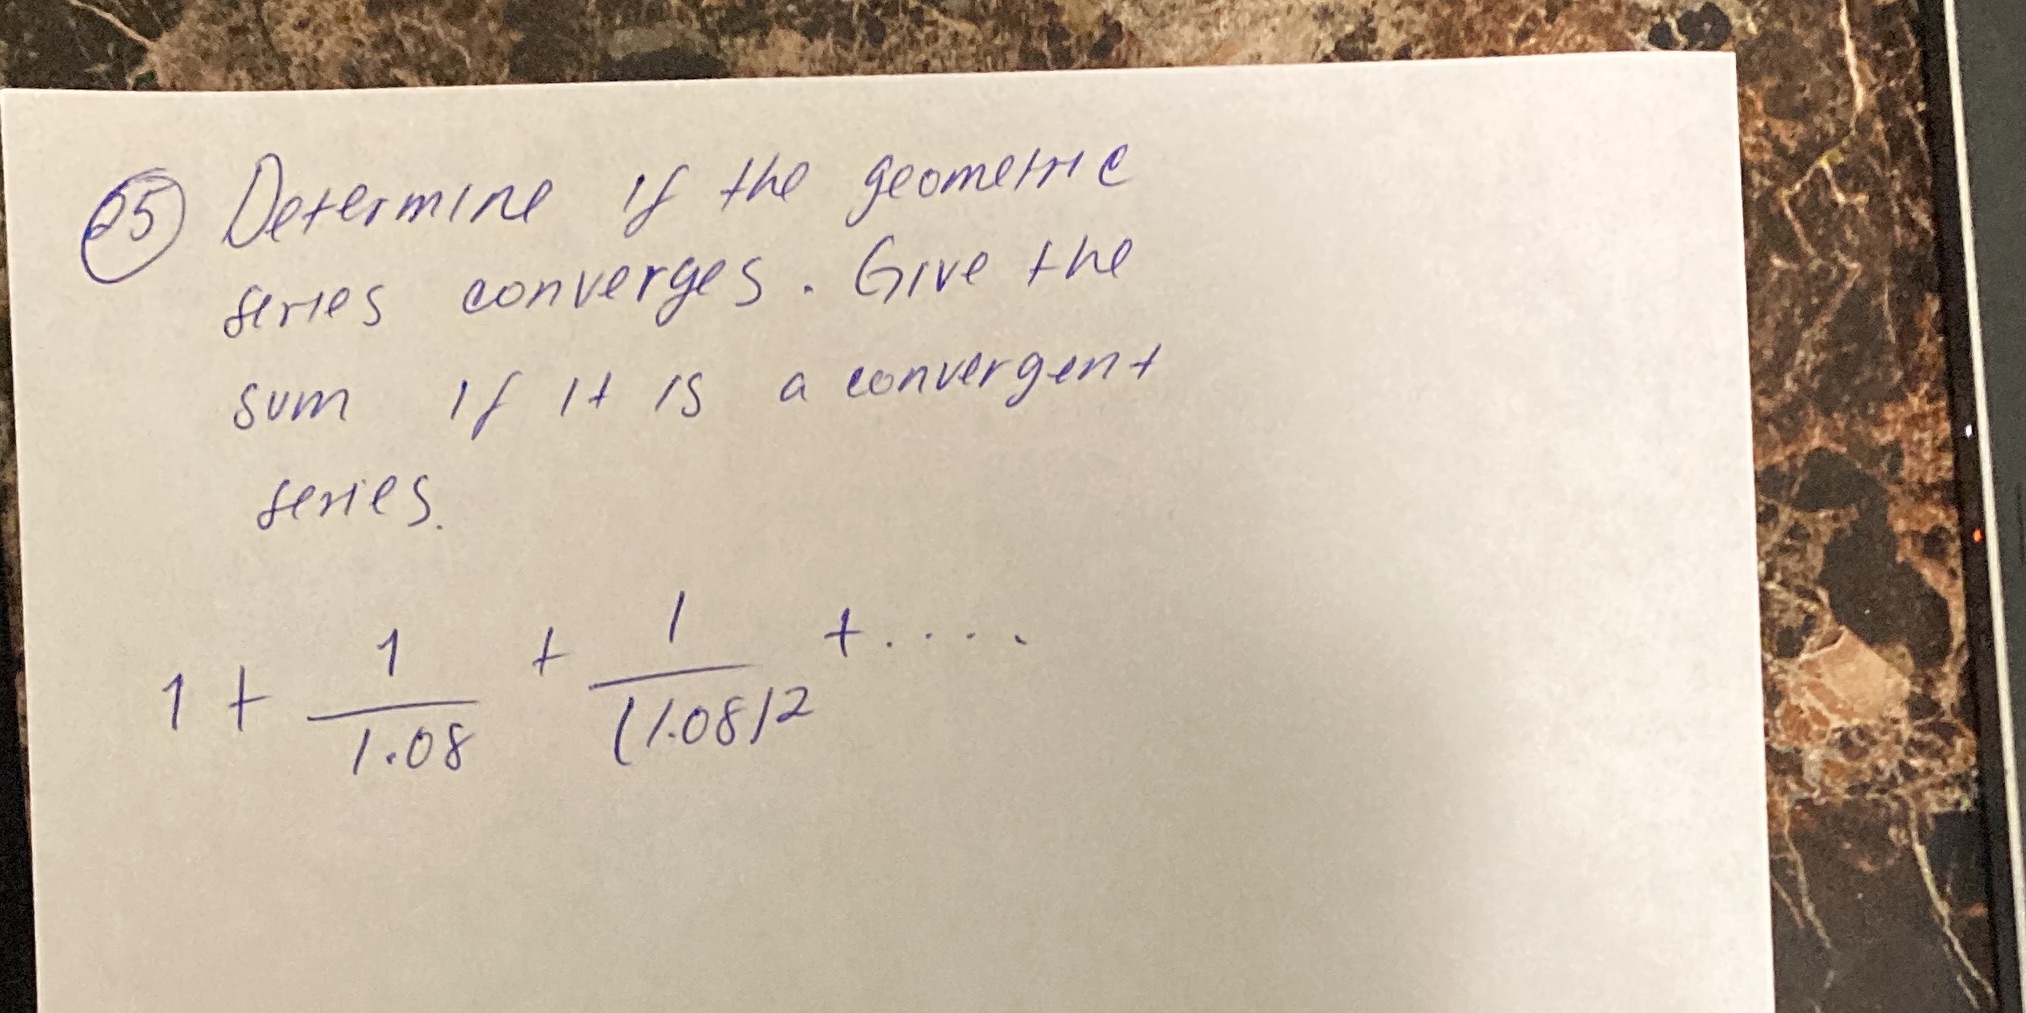 25 Determine if the geometric
series converges. Give the
sum if it is a convergent
series.
1 + 1/1.08 + 1/(1.08)2 + ....